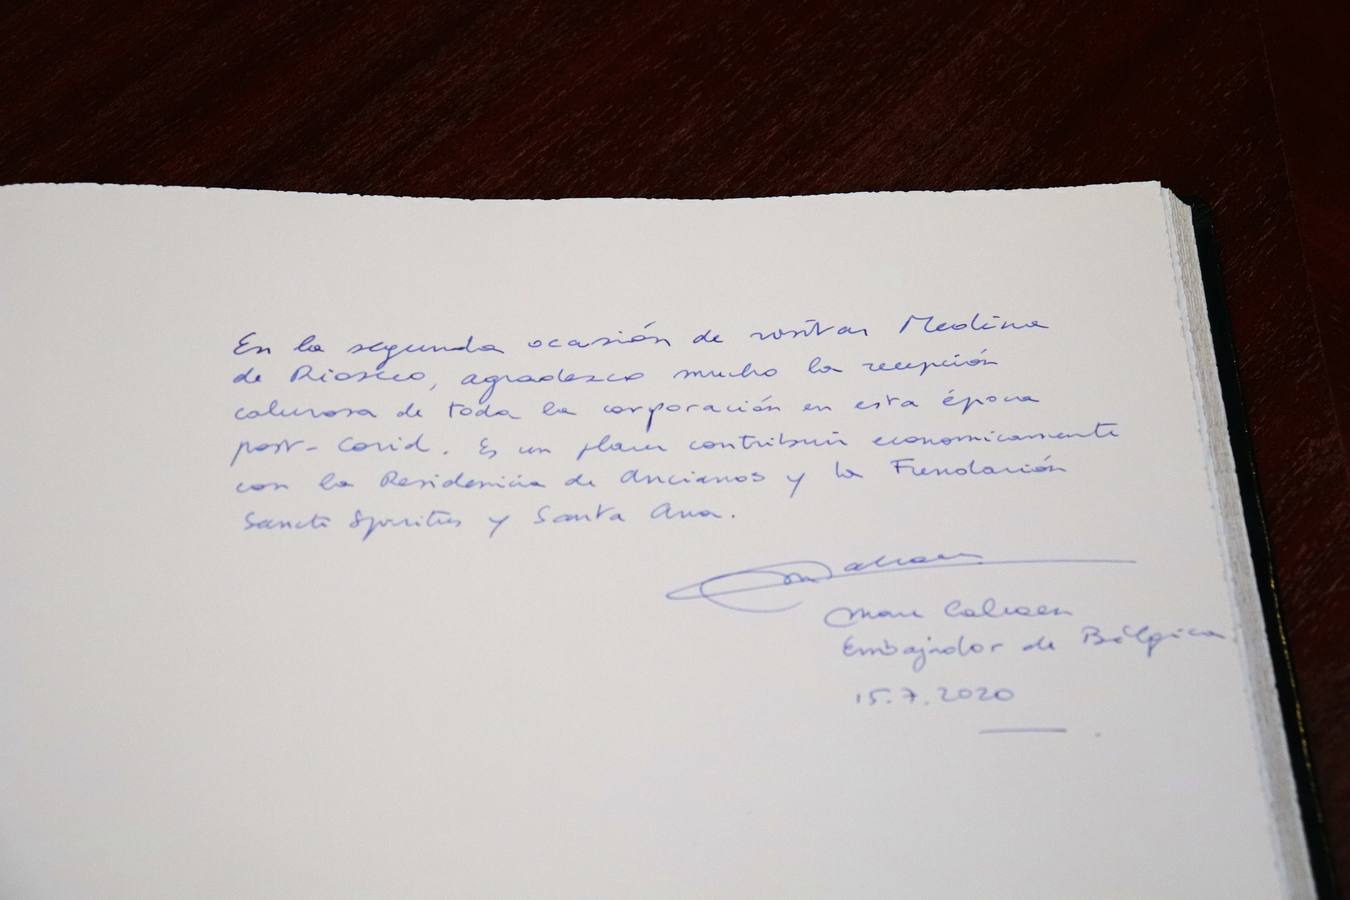 En la segunda ocasión de visitar Medina
de Rioseco, agradezco mucho la recepción
calurosa de toda la corporación en esta época
post-Covid. Es un placer contribuir economicamente
con la Residencia de Ancianos y la Fundación
Sancti Spiritus y Santa Ana.
Marc Calcoen
Embajador de Bélgica
15.7.2020